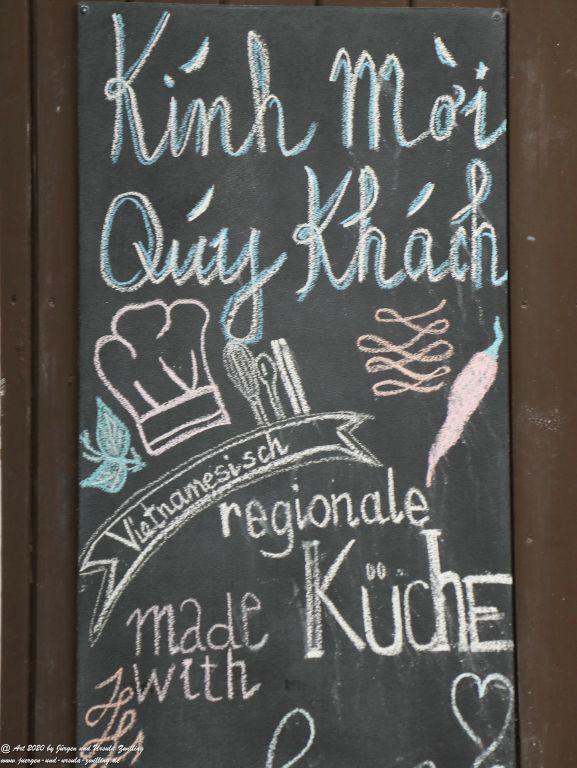 Kính Mời
Qúy Khách
Vietnamesisch
regionale
KücHE
made
with
@ Art 2020 by Jürgen und Ursula Zwilling
www.juergen-und-ursula-zwilling.de